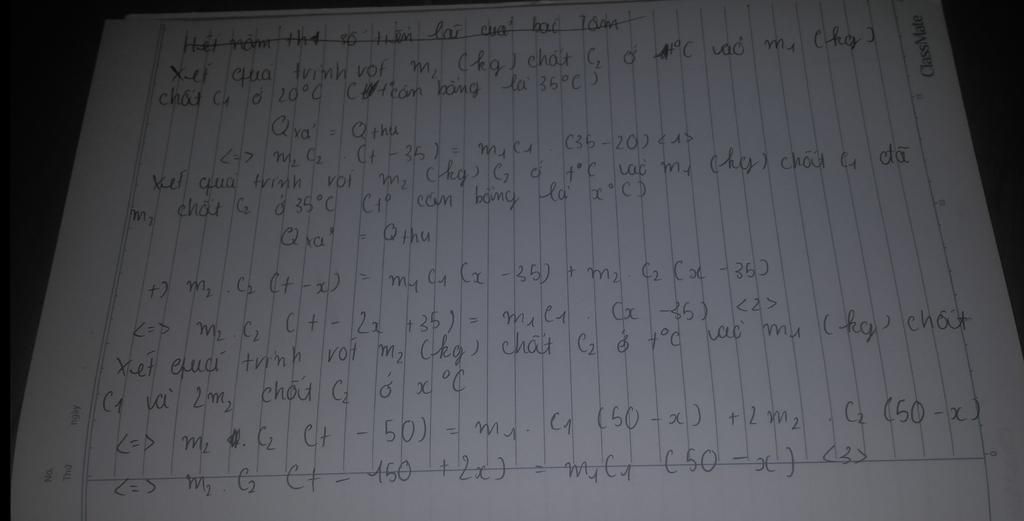 Hết năm thứ số tiền lãi của bác Tâm
Xét quá trình rót m₂ (kg) chất C₂ ở t°C vào m₁ (kg)
chất C₁ ở 20°C (t° cân bằng là 35°C)
Qxả = Qthu
<=> m₂C₂ . (t - 35) = m₁C₁ . (35 - 20) <1>
Xét quá trình rót m₂ (kg) C₂ ở t°C vào m₁ (kg) chất C₁ đã
m₂ chất C₂ ở 35°C (t° cân bằng là x°C)
Qxả = Qthu
+) m₂ . C₂ (t - x) = m₁C₁ (x - 35) + m₂ . C₂ (x - 35)
<=> m₂ . C₂ (t - 2x + 35) = m₁C₁ . (x - 35) <2>
Xét quá trình rót m₂ (kg) chất C₂ ở t°C vào m₁ (kg) chất
C₁ và 2m₂ chất C₂ ở x°C
<=> m₂ . C₂ (t - 50) = m₁ . C₁ (50 - x) + 2m₂ . C₂ (50 - x)
<=> m₂ . C₂ (t - 150 + 2x) = m₁C₁ (50 - x) <3>
ClassMate
No.
Thứ
ngày